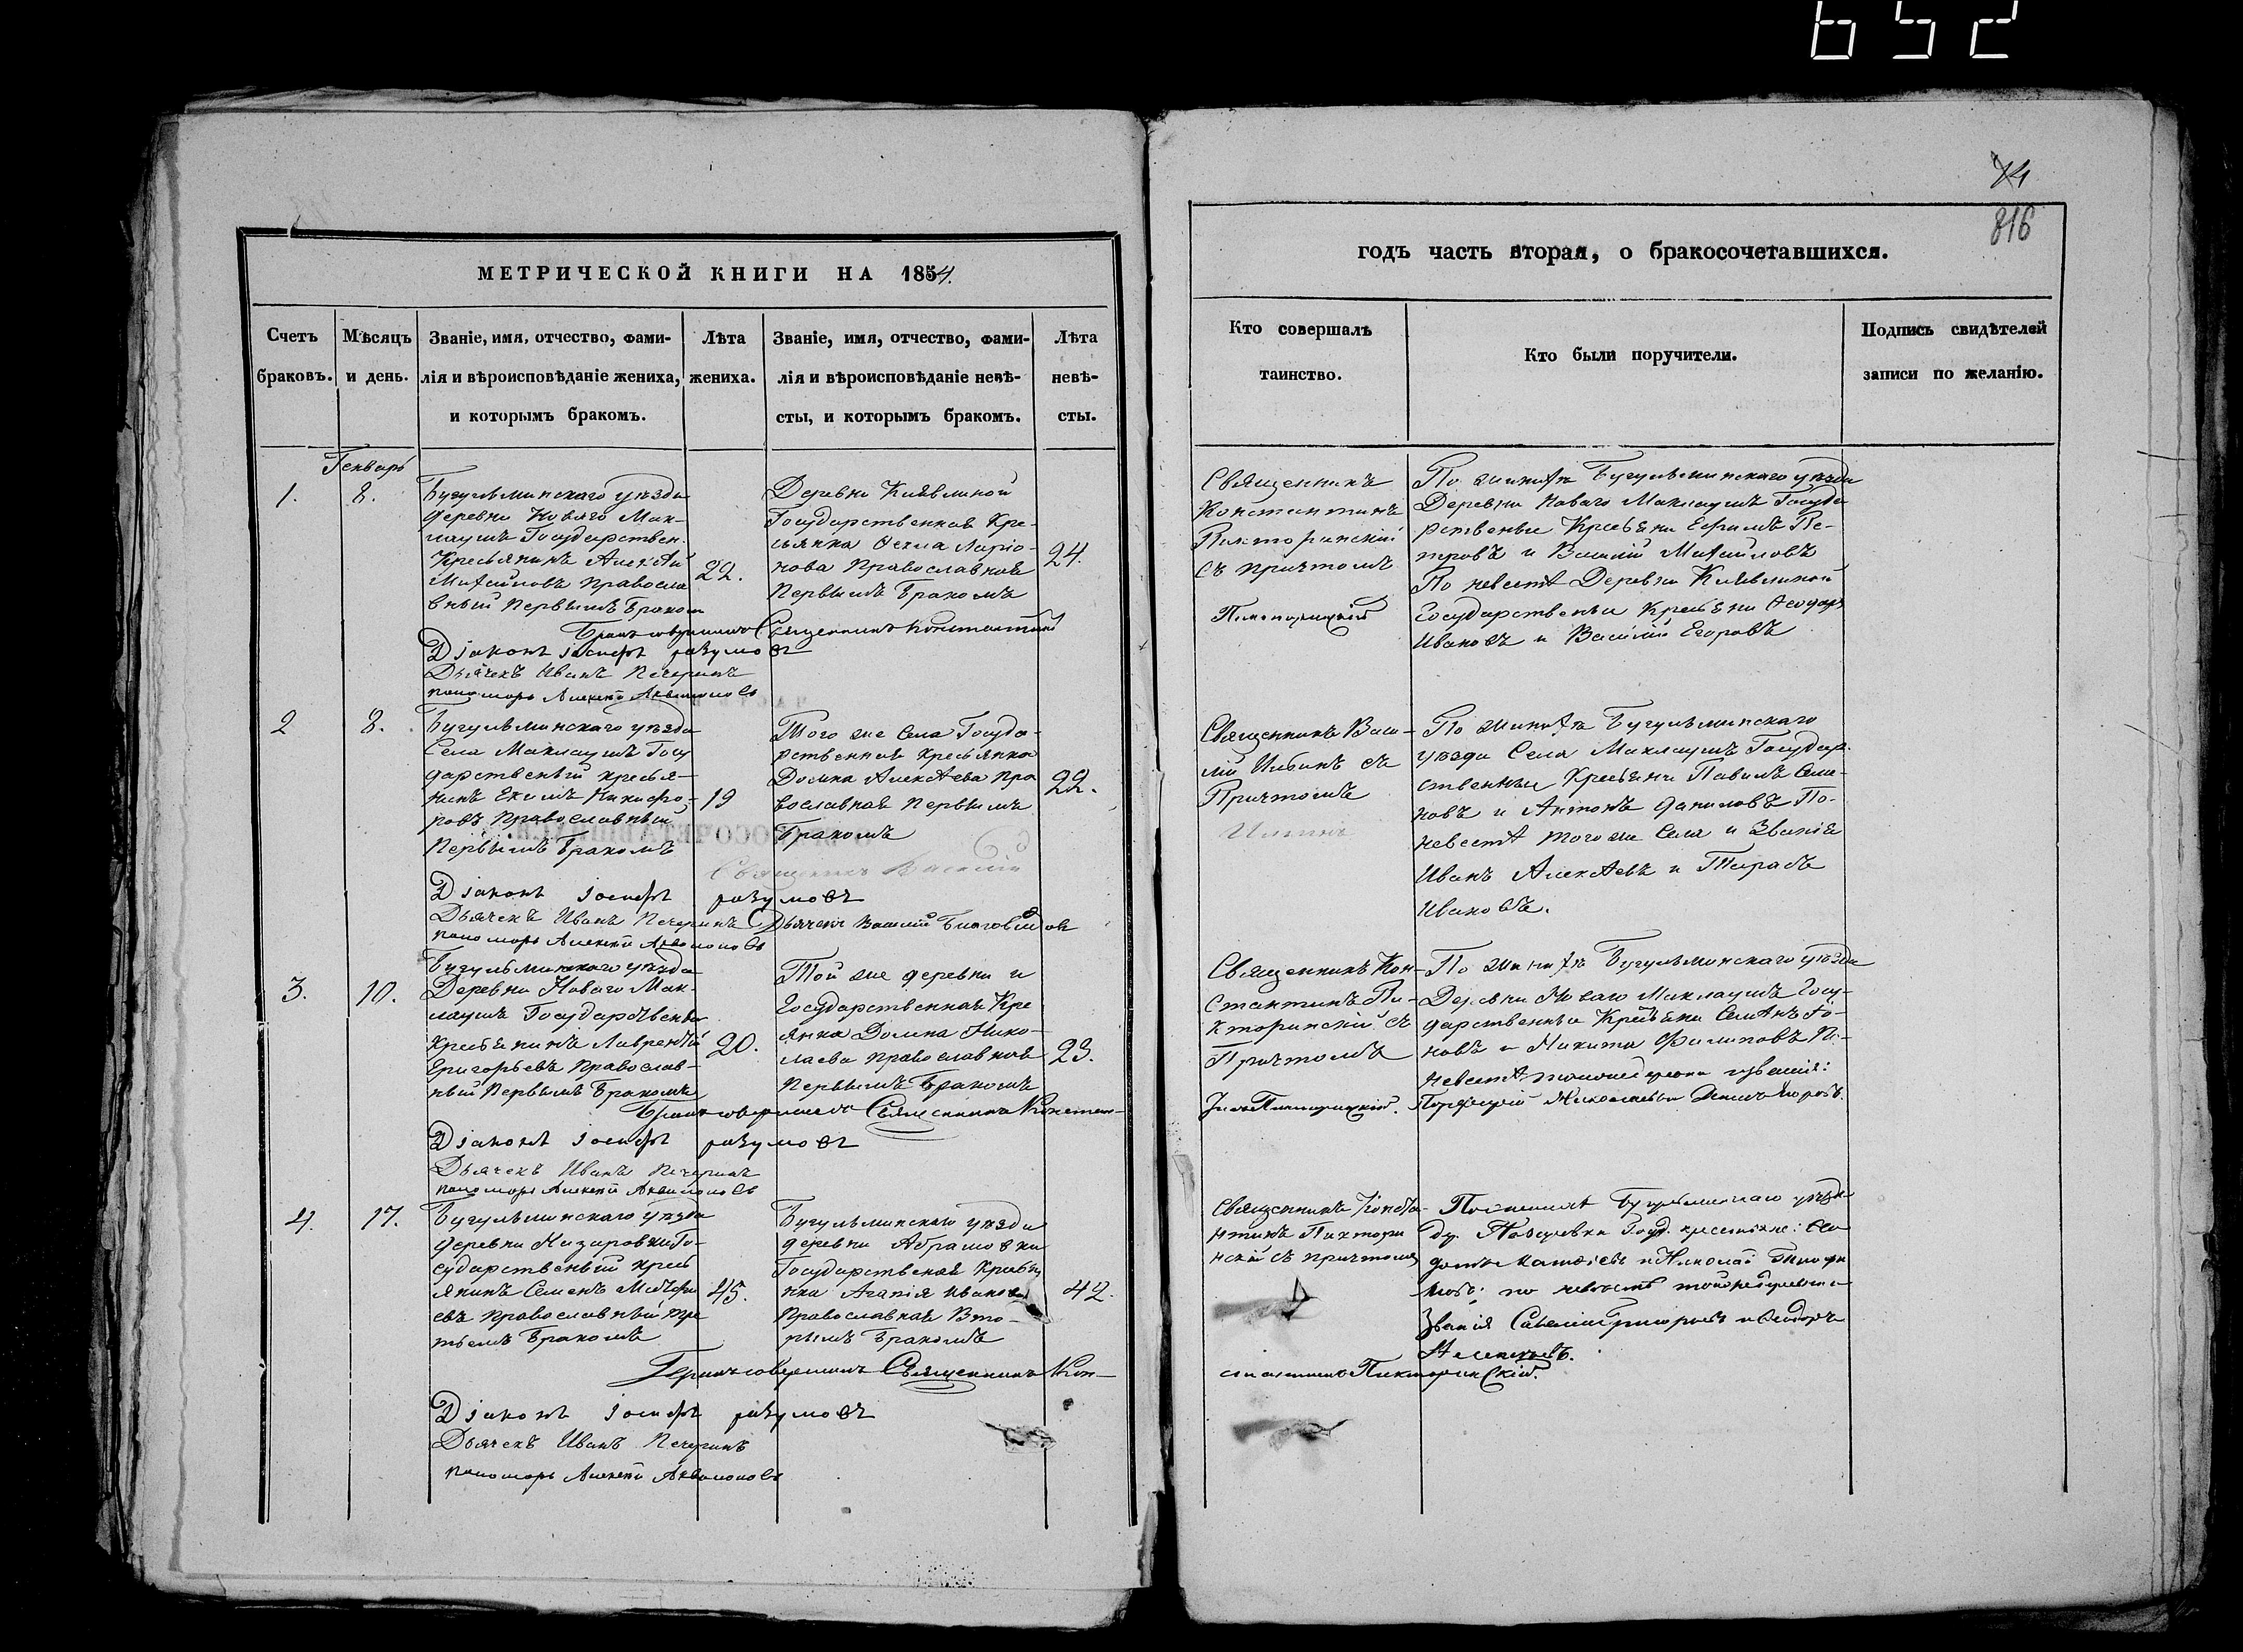 652
74
816
МЕТРИЧЕСКОЙ КНИГИ НА 1854.
Счетъ браковъ.
Мѣсяцъ и день.
Званіе, имя, отчество, фами-
лія и вѣроисповѣданіе жениха,
и которымъ бракомъ.
Лѣта жениха.
Званіе, имя, отчество, фами-
лія и вѣроисповѣданіе невѣ-
сты, и которымъ бракомъ.
Лѣта невѣ-
сты.
годъ часть вторая, о бракосочетавшихся.
Кто совершалъ
таинство.
Кто были поручители.
Подпись свидѣтелей
записи по желанію.
Генварь
1.
8.
Бугульминскаго уѣзда
деревни Новаго Мак-
лаушъ Государствен.
Крестьянинъ Алексѣй
Михайловъ Правосла
вный Первымъ Бракомъ
22.
Деревни Киявлиной
Государственная Кре-
стьянка Ѳекла Ларіо-
нова Православная
Первымъ Бракомъ
24.
Священникъ
Константинъ
Пикторинскій
съ причтомъ
По женихѣ Бугульминскаго уѣзда
Деревни Новаго Маклаушъ Госуда-
рственные Крестьяни Ефимъ Пе-
тровъ и Василій Михайловъ
По невестѣ Деревни Киявлиной
Государственыи Крестьяни Ѳеодоръ
Ивановъ и Василій Егоровъ
Бракъ совершилъ Священникъ Константинъ
Діаконъ Іосифъ разумовъ
Дьячекъ Иванъ Печеринъ
пономарь Алексей
2
8.
Бугульминскаго уѣзда
Села Маклаушъ Госу
дарственый крестья-
нинъ Екимъ Никифо-
ровъ Православный
Первымъ Бракомъ
19
Того же Села Госуда-
рственная Крестьянка
Домна Алексѣева Пра
вославная Первымъ
Бракомъ
22.
Священникъ Васи-
лій Ильинъ съ
Причтомъ
По женихѣ Бугульминскаго
уѣзда Села Маклаушъ Государ-
ственные Крестьяни Павилъ Семе-
новъ и Антонъ Даниловъ По-
невестѣ того же Села и Званія
Иванъ Алексѣевъ и Тарасъ
Ивановъ.
Священникъ Василій
Діаконъ Іосифъ разумовъ
Дьячекъ Иванъ Печеринъ Дьячекъ Василій Благовидов
пономарь Алексей
3.
10.
Бугульминскаго уѣзда
Деревни Новаго Мак-
лаушъ Государствены
Крестьянинъ Лаврентій
Григорьевъ Православ-
ный Первымъ Бракомъ
20.
Той же деревни и
Государственная Кре
янка Домна Нико-
лаева Православная
Первымъ Бракомъ
23.
Священникъ Кон-
стантинъ Пи-
кторинскій съ
Причтомъ
По женихѣ Бугульминскаго уѣзда
Деревни Новаго Маклаушъ Госу-
дарственныи Крестьяни
новъ и Никита Филиповъ По-
невестѣ тойже деревни извания:
Николаевъ
Бракъ совершилъ Священникъ Констан-
Діаконъ Іосифъ разумовъ
Дьячекъ Иванъ Печеринъ
пономарь Алексей
4.
17.
Бугульминскаго уѣзда
деревни Назаровки Го-
сударственый крест
янинъ Семенъ
евъ православный тре
тьемъ Бракомъ
45.
Бугульминскаго уѣзда
деревни Абрамовки
Государственая Крестья
нка Агапія Иванова
Православная Вто-
рымъ Бракомъ
42.
Священникъ Конста-
нтинъ Пиктори
нскій съ причтомъ
По женихѣ Бугульминскаго уѣзда
Назаровки Госуд. крестьяне: Ѳео
и Николай
по невестѣ тойже деревни и
Званія Савелій Григорьевъ и Ѳеодоръ
Алексеевъ.
Бракъ совершилъ Священникъ Кон-
стантинъ Пикторинскій.
Діаконъ Іосифъ разумовъ
Дьячекъ Иванъ Печеринъ
пономарь Алексей